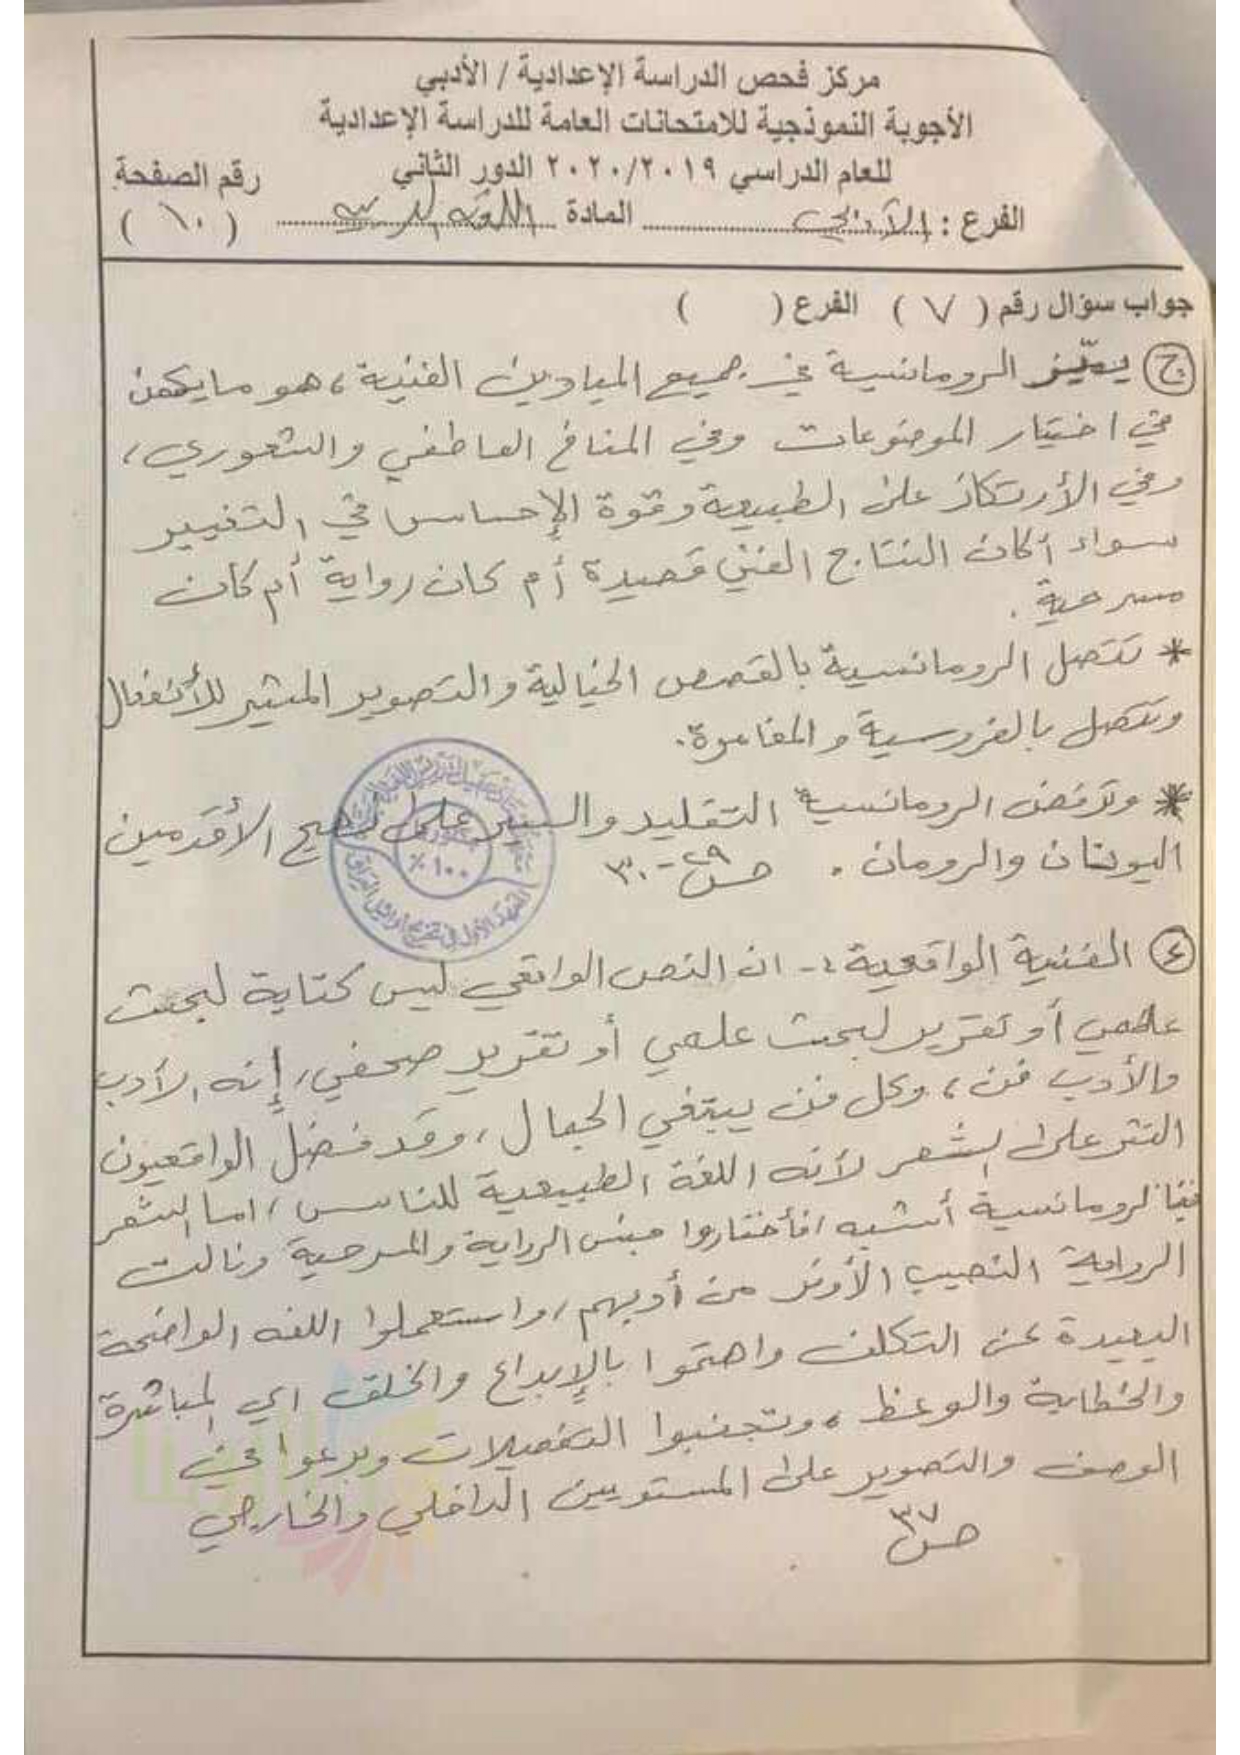 مركز فحص الدراسة الإعدادية / الأدبي
الأجوبة النموذجية للامتحانات العامة للدراسة الإعدادية
للعام الدراسي ٢٠٢٠/٢٠١٩ الدور الثاني
رقم الصفحة
الفرع : الأدبي المادة اللغة العربية ( ١٠ )
جواب سؤال رقم ( ٧ ) الفرع ( )
ج يميّز الرومانسية في جميع الميادين الفنية، هو ما يكمن
في اختيار الموضوعات وفي المناخ العاطفي والشعوري،
وفي الأرتكاز على الطبيعة وقوة الإحساس في التعبير
سواء أكان النتاج الفني قصيدة أم كان رواية أم كان
مسرحية .
* تتصل الرومانسية بالقصص الخيالية والتصوير المثير للأنفعال
وتتصل بالفروسية والمغامرة.
* وترفض الرومانسية التقليد والسير على نهج الأقدمين
اليونان والرومان . ص ٢٩ - ٣٠
٤ الفنية الواقعية :- ان النص الواقعي ليس كتابة لبحث
علمي أو تقرير لبحث علمي أو تقرير صحفي، إنه الأدب
والأدب فن، وكل فن يبتغي الجمال، وقد فضل الواقعيون
النثر على الشعر لأنه اللغة الطبيعية للناس، اما الشعر
فبالرومانسية أشبه، فأختاروا جنس الرواية والمسرحية ونالت
الرواية النصيب الأوفر من أدبهم، واستعملوا اللغه الواضحة
البعيدة عن التكلف واهتموا بالإبداع والخلق اي المباشرة
والخطابية والوعظ، وتجنبوا التفصيلات وبرعوا في
الوصف والتصوير على المستويين الداخلي والخارجي
ص ٣٧
١٠٠ ٪